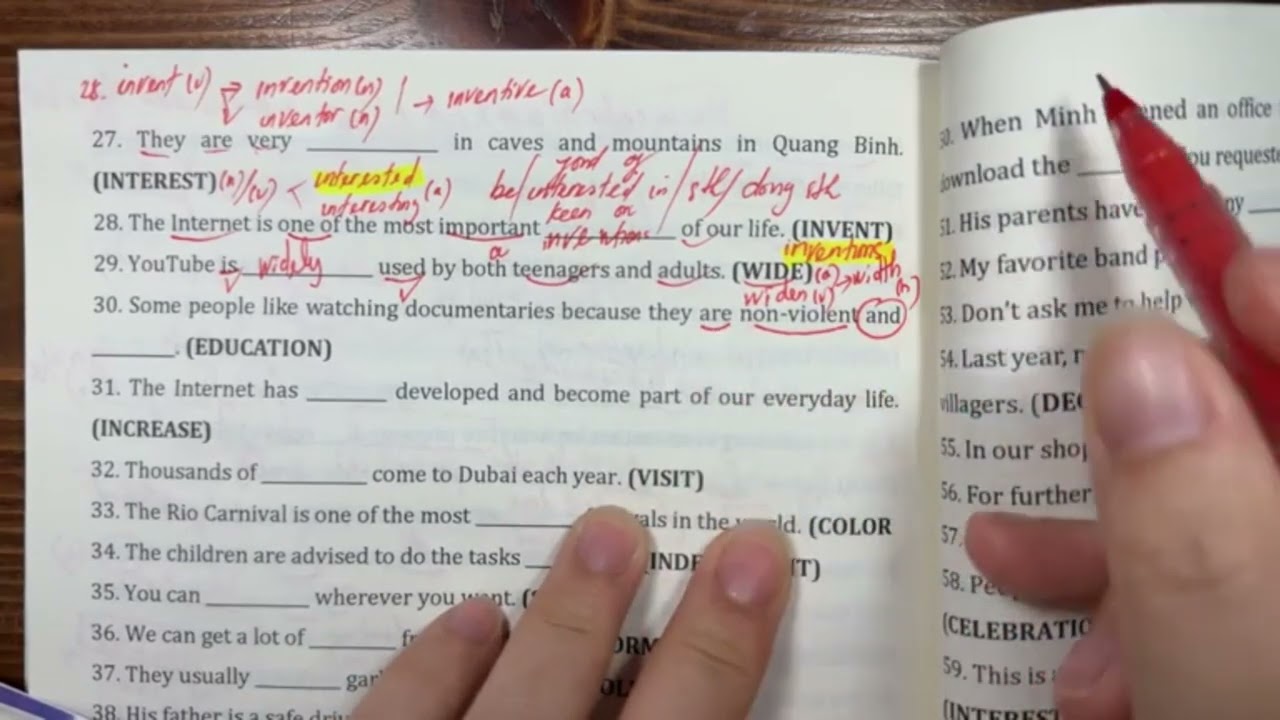 28. invent (v) → invention (n) | → inventive (a)
inventor (n)
27. They are very __________ in caves and mountains in Quang Binh.
(INTEREST) (n)/(v) < interested (a) be/interested in / sth/ doing sth
interesting
fond of
keen on
28. The Internet is one of the most important inventions of our life. (INVENT)
a
inventions
29. YouTube is widely used by both teenagers and adults. (WIDE) (a) → width (n)
widen (v)
30. Some people like watching documentaries because they are non-violent and
________. (EDUCATION)
31. The Internet has ________ developed and become part of our everyday life.
(INCREASE)
32. Thousands of ________ come to Dubai each year. (VISIT)
33. The Rio Carnival is one of the most ________ in the (COLOR
34. The children are advised to do the tasks
35. You can ________ wherever you
36. We can get a lot of ________
37. They usually ________
38. His father is a safe
When Minh an office
download the ____ you requested
51. His parents have
52. My favorite band
53. Don't ask me to help
54. Last year,
villagers.
55. In our
56. For further
57.
58.
(CELEBRATIO
59. This is
(INTEREST